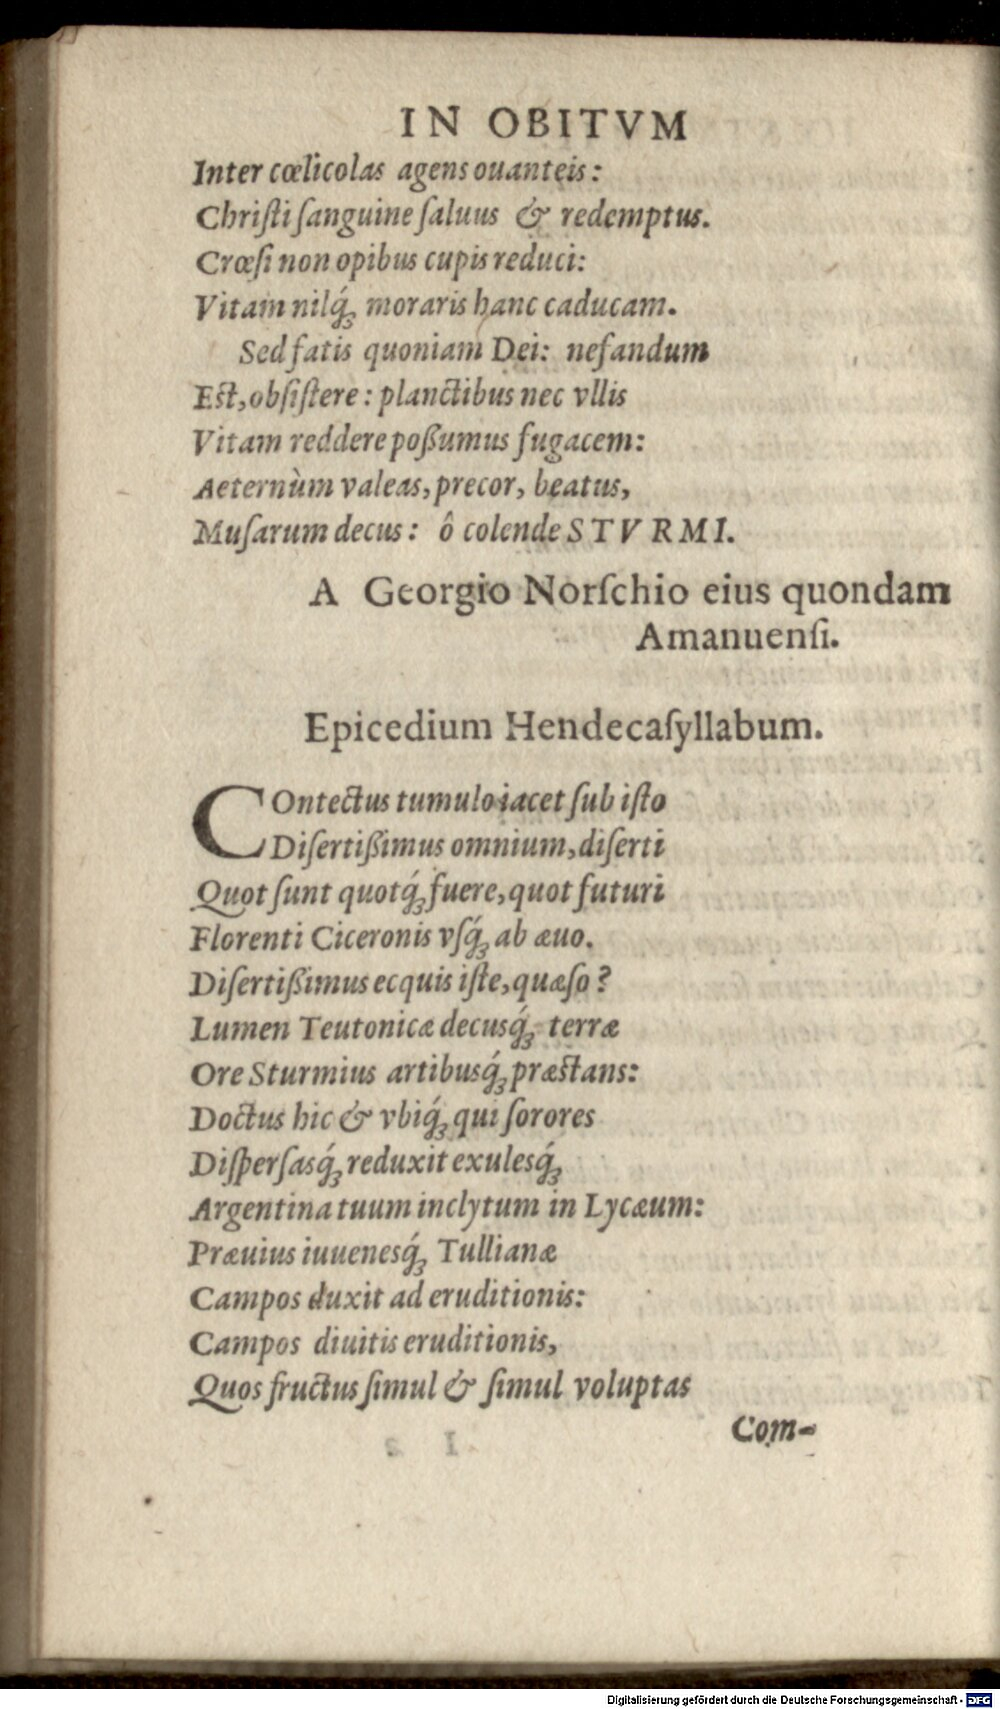 IN OBITVM
Inter cœlicolas agens ouanteis:
Chriſti ſanguine ſaluus & redemptus.
Crœſi non opibus cupis reduci:
Vitam nilq́ꝫ moraris hanc caducam.
Sed fatis quoniam Dei: nefandum
Eſt, obſiſtere: planctibus nec vllis
Vitam reddere poßumus fugacem:
Aeternùm valeas, precor, beatus,
Muſarum decus: ô colende STVRMI.
A Georgio Norſchio eius quondam
Amanuenſi.
Epicedium Hendecaſyllabum.
COntectus tumulo iacet ſub iſto
Diſertißimus omnium, diſerti
Quot ſunt quotq́ꝫ fuere, quot futuri
Florenti Ciceronis vſq́ꝫ ab æuo.
Diſertißimus ecquis iſte, quæſo?
Lumen Teutonicæ decusq́ꝫ terræ
Ore Sturmius artibusq́ꝫ præſtans:
Doctus hic & vbiq́ꝫ qui ſorores
Diſperſasq́ꝫ reduxit exulesq́ꝫ
Argentina tuum inclytum in Lycæum:
Præuius iuuenesq́ꝫ Tullianæ
Campos duxit ad eruditionis:
Campos diuitis eruditionis,
Quos fructus ſimul & ſimul voluptas
Com-
Digitalisierung gefördert durch die Deutsche Forschungsgemeinschaft - DFG